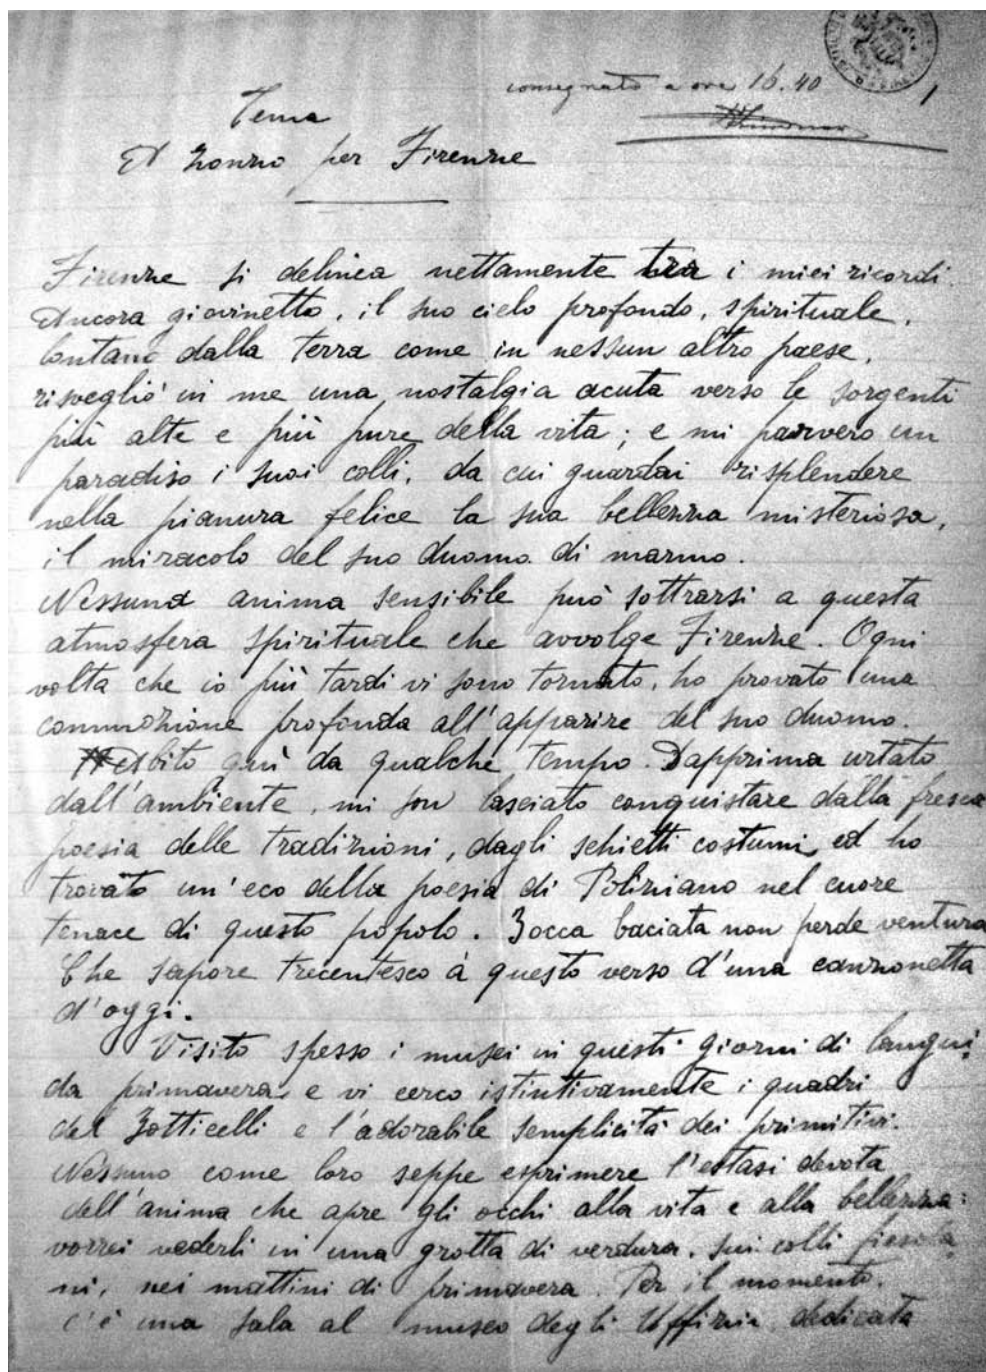 consegnato a ore 16.40
1
Tema
A zonzo per Firenze
Firenze si delinea nettamente tra i miei ricordi.
Ancora giovinetto, il suo cielo profondo, spirituale,
lontano dalla terra come in nessun altro paese,
risvegliò in me una nostalgia acuta verso le sorgenti
più alte e più pure della vita; e mi parvero un
paradiso i suoi colli, da cui guardai risplendere
nella pianura felice la sua bellezza misteriosa,
il miracolo del suo duomo di marmo.
Nessuna anima sensibile può sottrarsi a questa
atmosfera spirituale che avvolge Firenze. Ogni
volta che io più tardi vi sono tornato, ho provato una
commozione profonda all'apparire del suo duomo.
Abito quì da qualche tempo. Dapprima urtato
dall'ambiente, mi son lasciato conquistare dalla fresca
poesia delle tradizioni, dagli schietti costumi, ed ho
trovato un'eco della poesia di Poliziano nel cuore
tenace di questo popolo. Bocca baciata non perde ventura
Che sapore trecentesco à questo verso d'una canzonetta
d'oggi.
Visito spesso i musei in questi giorni di langui
da primavera, e vi cerco istintivamente i quadri
del Botticelli e l'adorabile semplicità dei primitivi.
Nessuno come loro seppe esprimere l'estasi devota
dell'anima che apre gli occhi alla vita e alla bellezza:
vorrei vederli in una grotta di verdura, sui colli fiesola
ni, nei mattini di primavera. Per il momento,
c'è una sala al museo degli Uffizii dedicata